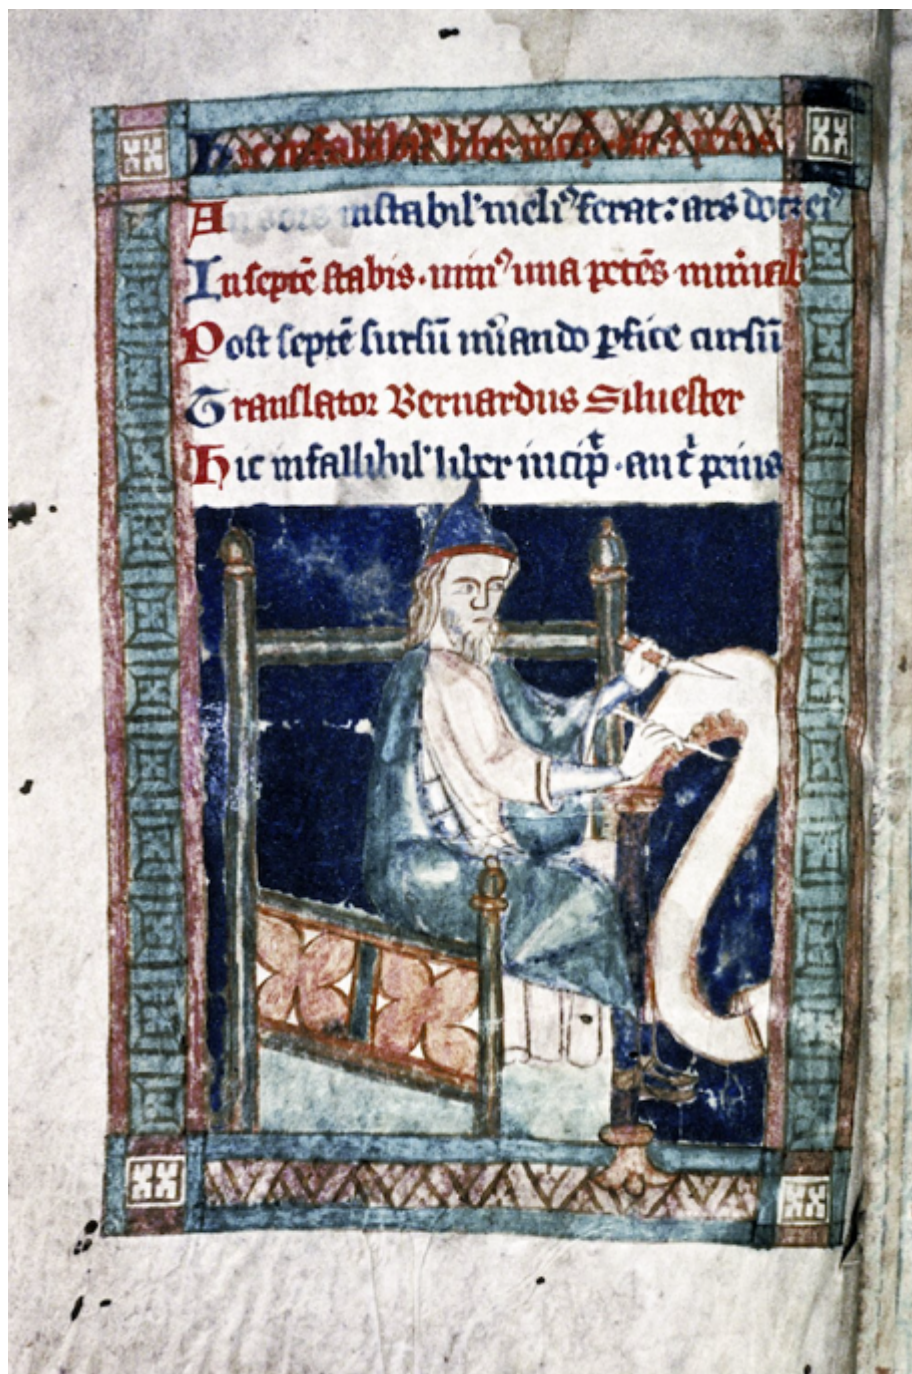 Hic infallibil' liber incip̄ aut̄ peius
A instabil' meli᾿ ferat: ars docet ei᾿
In septē stabis. uni᾿ una petēs
Post septē sursū mẜando ꝑfice cursū
Translator Bernardus Siluester
Hic infallibil' liber incip̄ · aut̄ peius